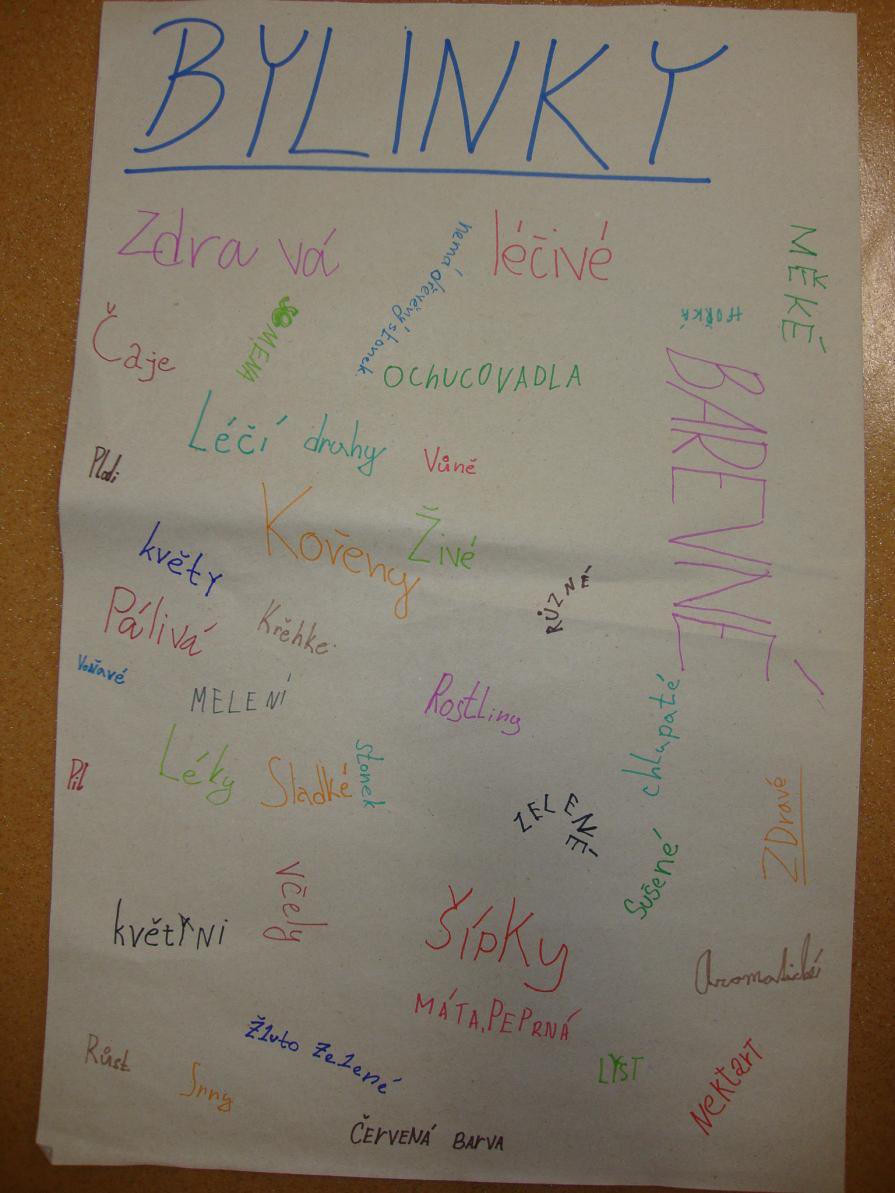 BYLINKY
Zdravá
léčivé
MĚKÉ
nemá dřevěný stonek
HOŘKÁ
Čaje
OCHUCOVADLA
BAREVNÉ
Léčí druhy
Vůně
Plodi
Kořeny
Živé
květy
RŮZNÉ
Pálivá
Křehke
Voňavé
MELENÍ
Rostliny
chlupaté
Léky
Sladké
stonek
Pil
ZELENÉ
ZDravé
Sušené
včely
květYNi
Šípky
Aromatické
MÁTA,PEPRNÁ
Žluto Zelené
Růst
Srny
LYST
Nektart
ČERVENÁ BARVA